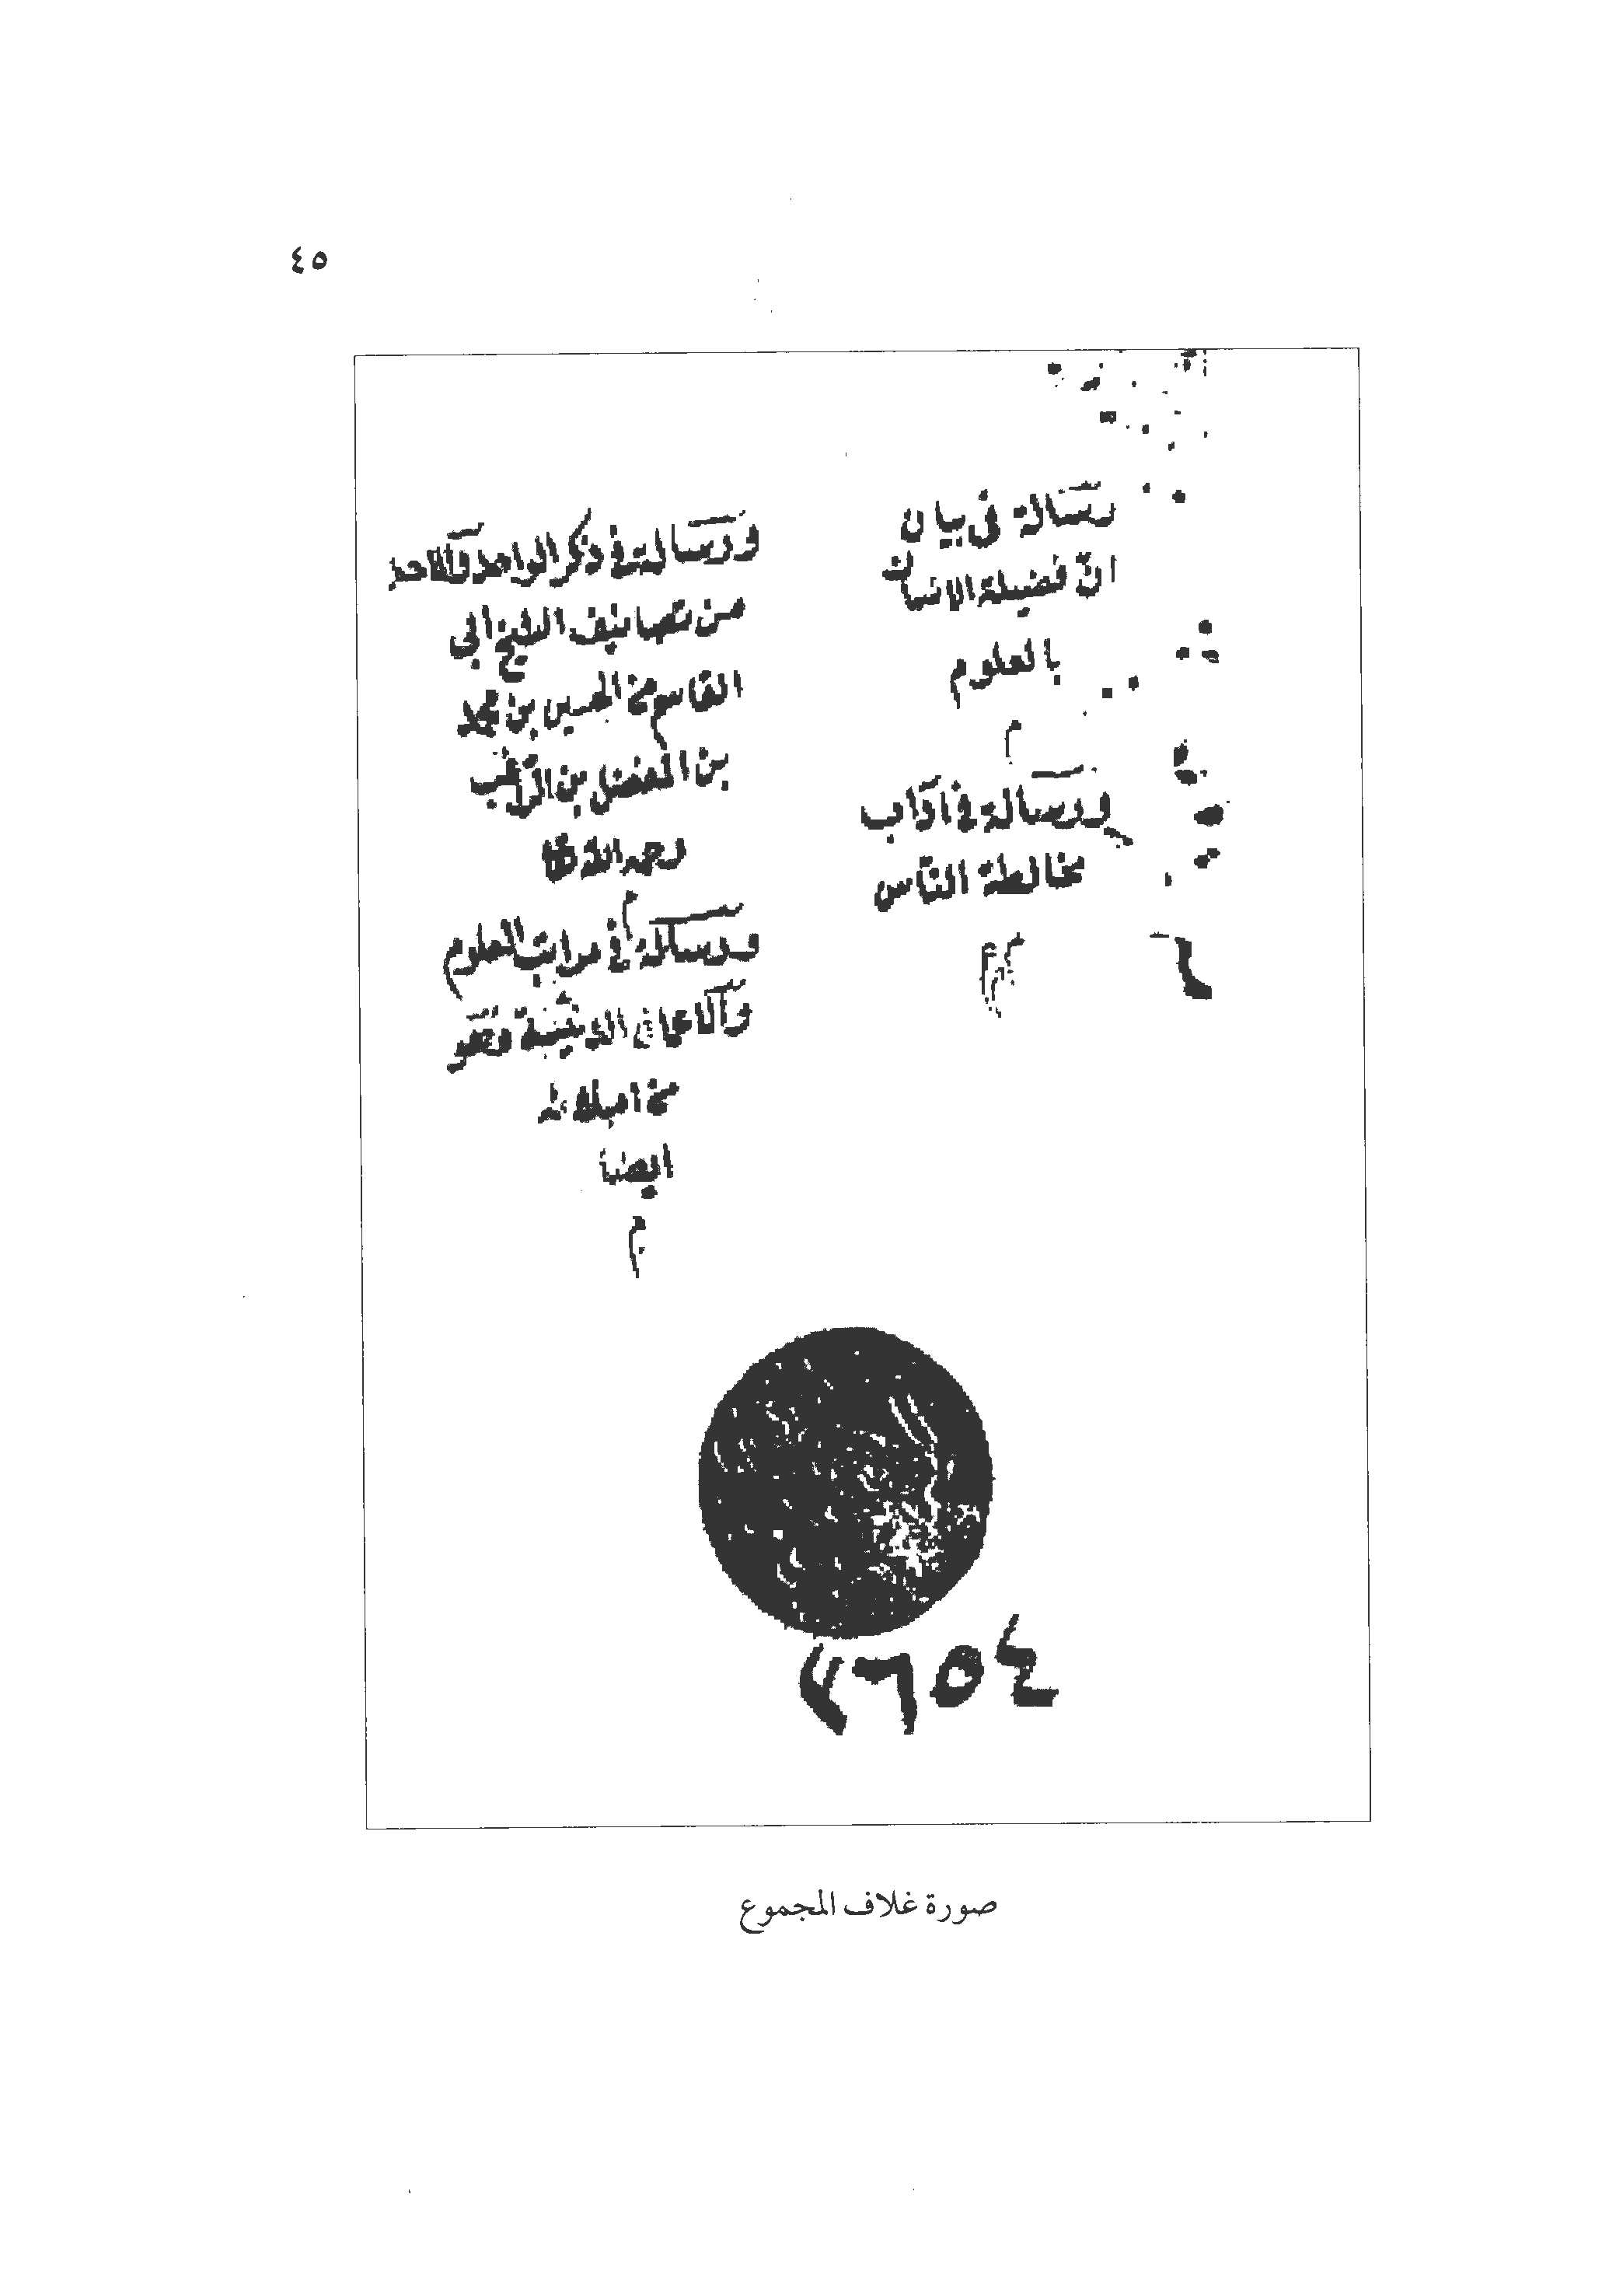 ٤٥
رسالة فى بيان
انّ فضيلة الانسان
بالعلوم
م
ورسالة فى اداب
مخالطة الناس
ورسالة فى ذكر الواحد والاحد
من تصانيف الشيخ ابى
القاسم الحسين بن محمد
بن المفضل بن الراغب
رحمه الله
م
ورسالة فى مراتب العلوم
والاعمال الدينية
ايضا
م
٤٥٦٧
صورة غلاف المجموع